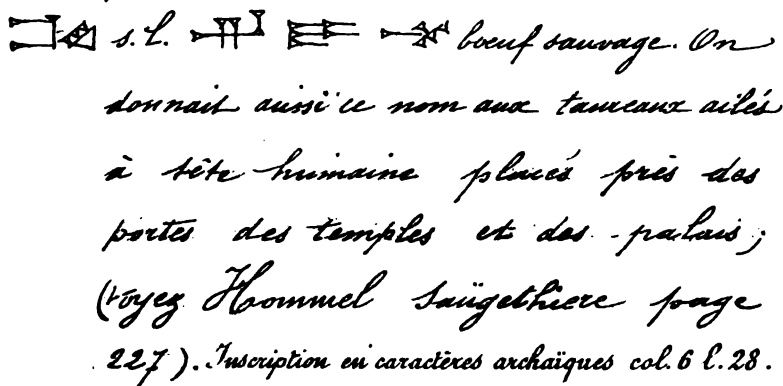 𒄠 s.l. 𒊑 𒂊 𒈬 bœuf sauvage. On
donnait aussi ce nom aux taureaux ailés
à tête humaine placés près des
portes des temples et des palais;
(voyez Hommel Saügethiere page
227). Inscription en caractères archaïques col. 6 l. 28.